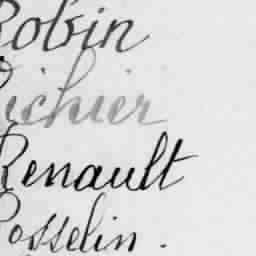 Robin
Richier
Renault
Rosselin.